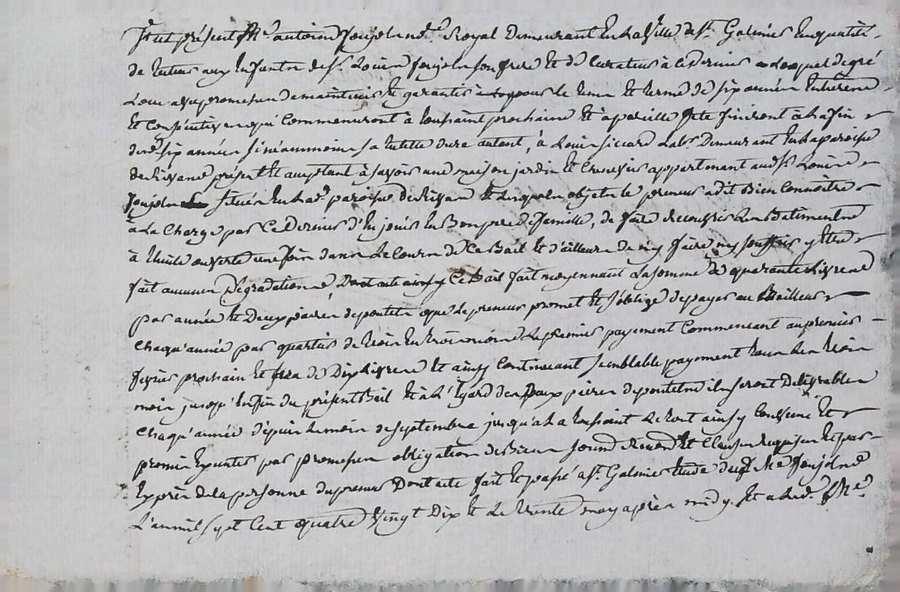 fut présent Me antoine Joujoln nre Royal Demeurant En la Ville de st Galmier En qualité
de tuteur aux Enfants de sr Louis Joujoln son frere Et de Curateur à Lequel de gré
Loue avec promesse de maintenir Et garantir pour le tems Et terme de six années Entieres
Et Consécutives qui Commenceront à toussaint prochaine Et à pareille fete finiront à la fin
desd. six années à Louis siccard Labr Demeurant En la paroisse
de présent Et acceptant à savoir une maison jardin Et appartenant aud. sr Louis
Joujoln situés En lad. paroisse de Et Lesquels objets le preneur a dit Bien Connoitre
à La Charge par Ce Dernier d'En jouir En Bon pere de famille, de faire recouvrir Les Batiments
à thuile ouverte une fois dans Le Cours de Ce Bail Et d'ailleurs de n'y faire ny souffrir y Etre
fait aucunes Dégradations, Dont acte ainsy Ce Bail fait moyennant La somme de quarante Livres
par année Et Deux paires de poulets que Le preneur promet Et s'oblige de payer au Bailleur
Chaqu'année par quartier de trois En trois mois Le premier payement Commencant au premier
fevrier prochain Et sera de Dix Livres Et ainsy Continuant semblable payement tous Les trois
mois jusqu'En fin du présent Bail Et à L'égard des Deux paires de poulets ils seront Délivrables
Chaqu'année depuis Le mois de septembre jusqu'à La toussaint Le tout ainsy Convenu Et
promis Exécuter par promesse obligation de Biens soumis. Renond. Et Clauses requises Et par
Exprès de la personne du preneur Dont acte fait Et passé à st Galmier Etude dud. Me Joujoln
L'an mil sept Cent quatre Vingt Dix Et Le trente may après midy Et a Led. Me